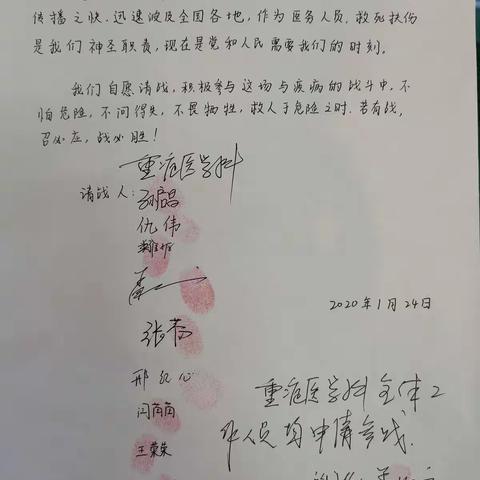 传播之快、迅速波及全国各地，作为医务人员，救死扶伤
是我们神圣职责，现在是党和人民需要我们的时刻。
我们自愿请战，积极参与这场与疾病的战斗中，不
怕危险，不问得失，不畏牺牲，救人于危险之时。若有战，
召必应，战必胜！
重症医学科
请战人：孙启昌
仇伟
2020年1月24日
邢纪心
重症医学科全体工
闫萌萌
作人员均申请参战.
王荣荣